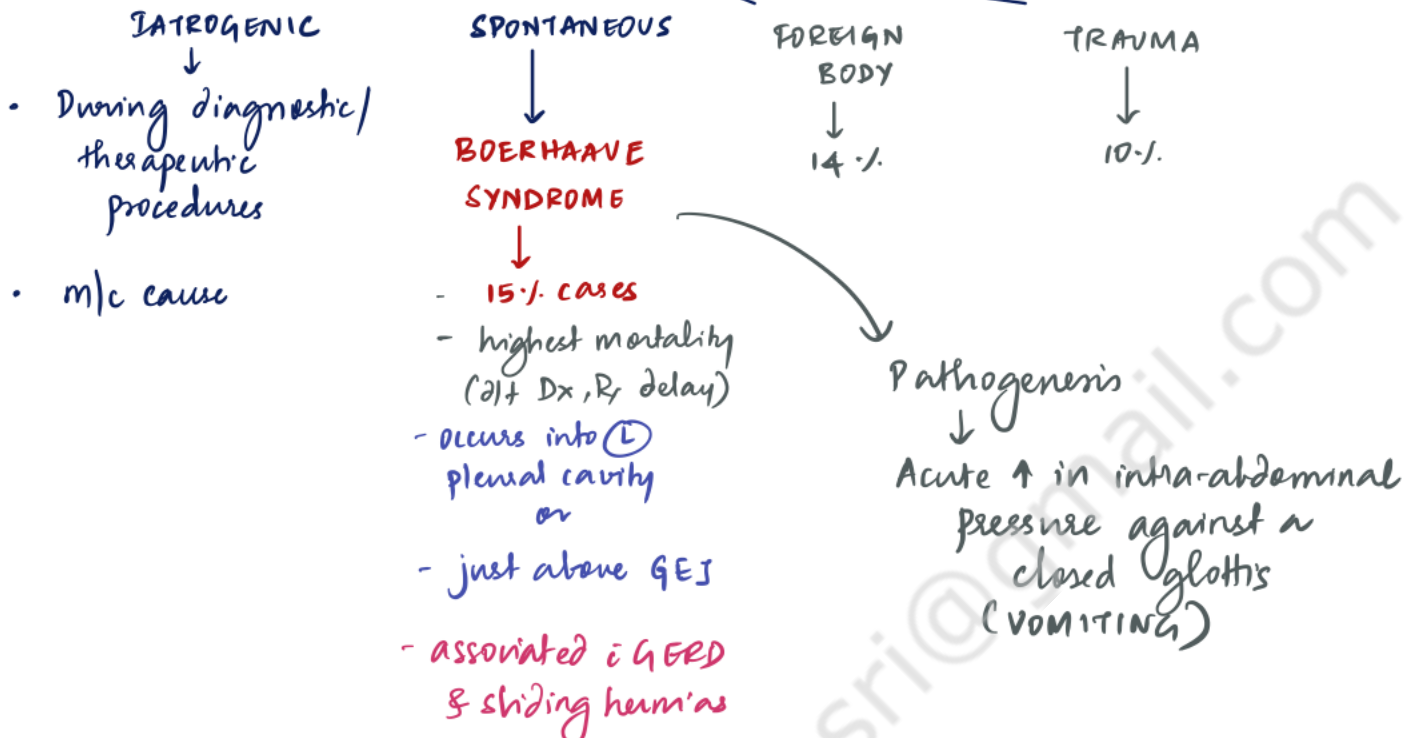 IATROGENIC
↓
• During diagnostic/
therapeutic
procedures
• m/c cause
SPONTANEOUS
↓
BOERHAAVE
SYNDROME
↓
- 15% cases
- highest mortality
(d/t Dx, Rx delay)
- occurs into Ⓛ
pleural cavity
or
- just above GEJ
- associated c̄ GERD
& sliding hernias
FOREIGN
BODY
↓
14%
TRAUMA
↓
10%
Pathogenesis
↓
Acute ↑ in intra-abdominal
pressure against a
closed glottis
(VOMITING)
sri@gmail.com